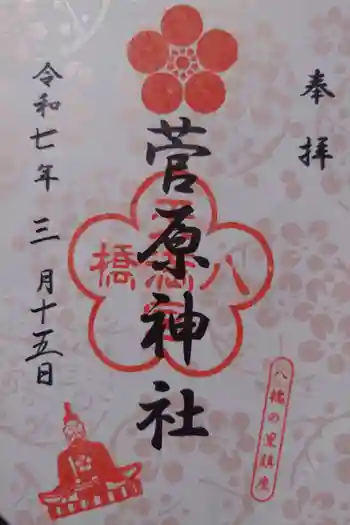 奉拝
菅原神社
令和七年三月十五日
八橋
八橋の里鎮座